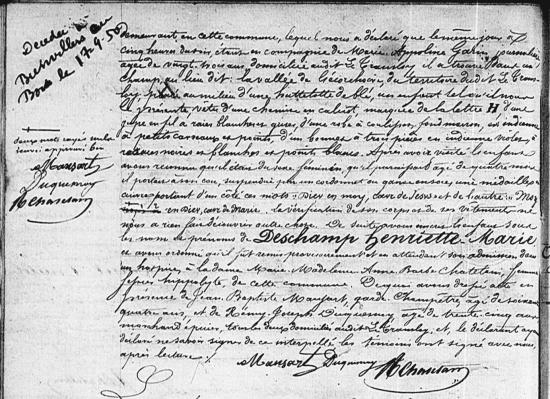 Décédée à
Bretvillers au
Bois le 17-9-50
demeurant en cette commune, lequel nous a déclaré que le même jour à
cinq heures du soir, étant en compagnie de Marie Appoline Garin, journalière
âgée de vingt trois ans domiciliée audit Le Transloy, il a trouvé dans un
champ au lieu dit: la vallée de du territoire dudit Le Trans-
loy, au milieu d'une huttelotte de blé, un enfant tel qu'il nous
l'a présenté, vêtu d'une chemise en calicot, marquée de la lettre H d'une
jupe en fil à raies blanches et grises, d'une robe à coulisses, fond marron, en indienne
à petits carreaux et points, d'un bonnet à trois pièces en indienne violet, à
raies noires et blanches et points blancs. Après avoir visité l'enfant
avons reconnu qu'il était du sexe féminin, qu'il paraissait âgé de quatre mois
il portait à son cou, suspendue par un cordonnet ou ganse une médaille
cuivre portant d'un côté ces mots: " Dieu en moy, cœur de Jesus et de l'autre " Moy
en Dieu, cœur de Marie, la vérification de son corps et de ses vêtements ne
nous a rien fait découvrir autre chose. De suite avons inscrit l'enfant sous
les nom et prénoms de Deschamp Henriette Marie
et avons ordonné qu'il fut remis provisoirement et en attendant son admission dans
un hospice, à la dame Marie Madeleine Anne Barbe Chatelain, femme
Hippolyte de cette commune. De quoi avons dressé acte en
présence de Jean Baptiste Maussart, garde champêtre, âgé de soixante
quatre ans, et de Rémy Joseph Duquesnoy, âgé de trente cinq ans
marchand épicier, tous les deux domiciliés audit Le Transloy, et le déclarant ayant
déclaré ne savoir signer de ce interpellé les témoins ont signé avec nous
après lecture.
Maussart Duquesnoy